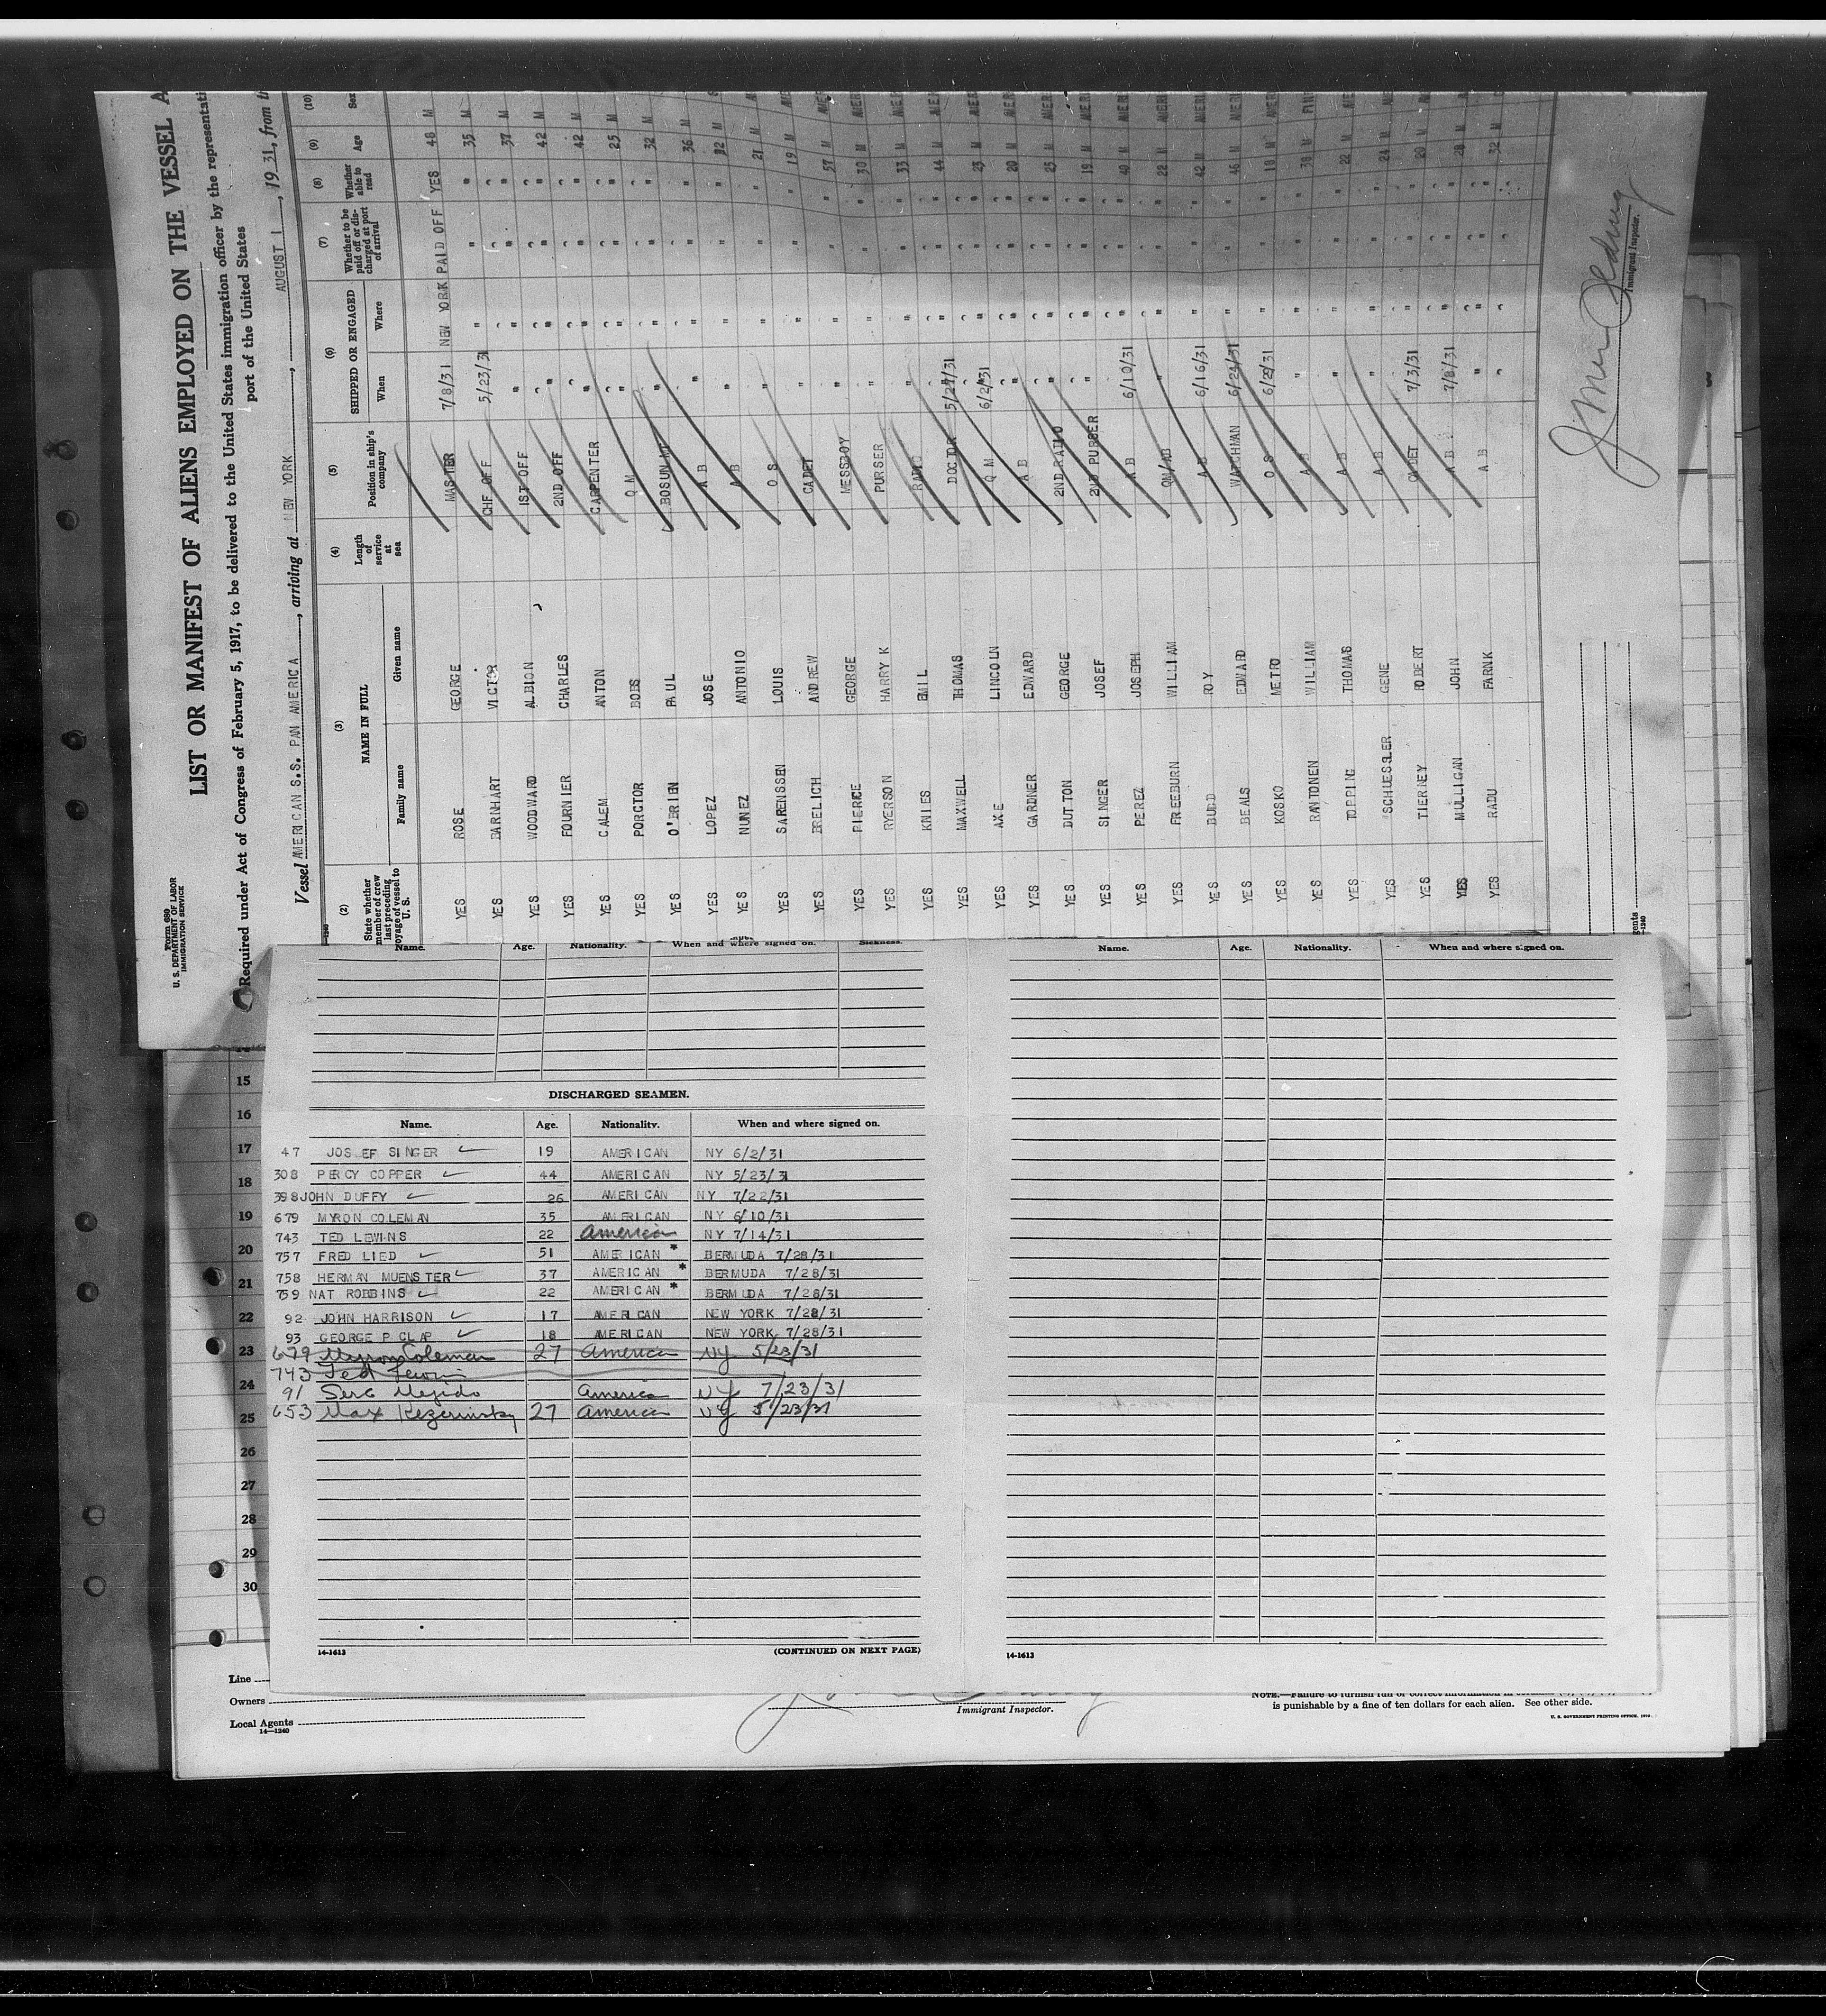 Form 680
U. S. DEPARTMENT OF LABOR
IMMIGRATION SERVICE
LIST OR MANIFEST OF ALIENS EMPLOYED ON THE VESSEL A
Required under Act of Congress of February 5, 1917, to be delivered to the United States immigration officer by the representati
port of the United States
Vessel AMERICAN S.S. PAN AMERICA, arriving at NEW YORK, AUGUST 1, 1931, from t
(2) (3) (4) (5) (6) (7) (8) (9) (10)
State whether member of crew last preceding voyage of vessel to U. S. NAME IN FULL Length of service at sea Position in ship's company SHIPPED OR ENGAGED Whether to be paid off or discharged at port of arrival Whether able to read Age Sex
Family name Given name When Where
YES ROSE GEORGE MASTER 7/8/31 NEW YORK PAID OFF YES 48 M
YES BARNHART VICTOR CHF OFF 5/23/31 " " " 35 M
YES WOODWARD ALBION 1ST OFF " " " " 37 M
YES FOURNIER CHARLES 2ND OFF " " " " 42 M
YES CALEM ANTON CARPENTER " " " " 42 M
YES PORCTOR BOBS Q M " " " " 25 M
YES O'BRIEN PAUL BOSUN MT " " " " 32 M
YES LOPEZ JOSE A B " " " " 36 M
YES NUNEZ ANTONIO A B " " " " M
YES SARENSSEN LOUIS O S " " " " 21 M
YES BRELICH ANDREW CADET " " " " 19 M
YES PIERCE GEORGE MESSBOY " " " " 57 M
YES RYERSON HARRY K PURSER " " " " 30 M
YES KNIES EMIL RADIO " " " " 33 M
YES MAXWELL THOMAS DOCTOR 5/27/31 " " " 44 M
YES AXE LINCOLN Q M 6/2/31 " " " M
YES GARDNER EDWARD A B " " " " 20 M
YES DUTTON GEORGE 2ND RADIO " " " " 25 M
YES SINGER JOSEF 2ND PURSER " " " " 19 M
YES PEREZ JOSEPH A B 6/10/31 " " " 40 M
YES FREEBURN WILLIAM QM/AB " " " " 22 M
YES BUDD ROY A B 6/16/31 " " " 42 M
YES BEALS EDWARD WATCHMAN 6/24/31 " " " 46 M
YES KOSKO METRO O S 6/2/31 " " " 18 M
YES RANTONEN WILLIAM A B " " " " 38 M
YES TOPPING THOMAS A B " " " " 22 M
YES SCHUESSLER GENE A B " " " " 24 M
YES TIERNEY ROBERT CADET 7/3/31 " " " 20 M
YES MULLIGAN JOHN A B 7/8/31 " " " 28 M
YES RADU FARNK A B " " " " 32 M
Immigrant Inspector.
Name. Age. Nationality. When and where signed on. Sickness.
DISCHARGED SEAMEN.
Name. Age. Nationality. When and where signed on.
47 JOSEF SINGER 19 AMERICAN NY 6/2/31
308 PERCY COPPER 44 AMERICAN NY 5/23/31
398 JOHN DUFFY 26 AMERICAN NY 7/22/31
679 MYRON COLEMAN 35 AMERICAN NY 6/10/31
743 TED LEWINS 22 America NY 7/14/31
757 FRED LIED 51 AMERICAN * BERMUDA 7/28/31
758 HERMAN MUENSTER 37 AMERICAN * BERMUDA 7/28/31
759 NAT ROBBINS 22 AMERICAN * BERMUDA 7/28/31
92 JOHN HARRISON 17 AMERICAN NEW YORK 7/28/31
93 GEORGE P CLAP 18 AMERICAN NEW YORK 7/28/31
679 Myron Coleman 27 America NY 5/23/31
743 Ted Lewins
91 Serc Mejido America NY 7/23/31
653 Max Kezerinsky 27 America NY 5/23/31
14-1613
(CONTINUED ON NEXT PAGE)
Name. Age. Nationality. When and where signed on.
14-1613
15
16
17
18
19
20
21
22
23
24
25
26
27
28
29
30
Line
Owners
Local Agents
14—1240
Immigrant Inspector.
NOTE.—Failure to furnish full or correct information in
is punishable by a fine of ten dollars for each alien. See other side.
U. S. GOVERNMENT PRINTING OFFICE